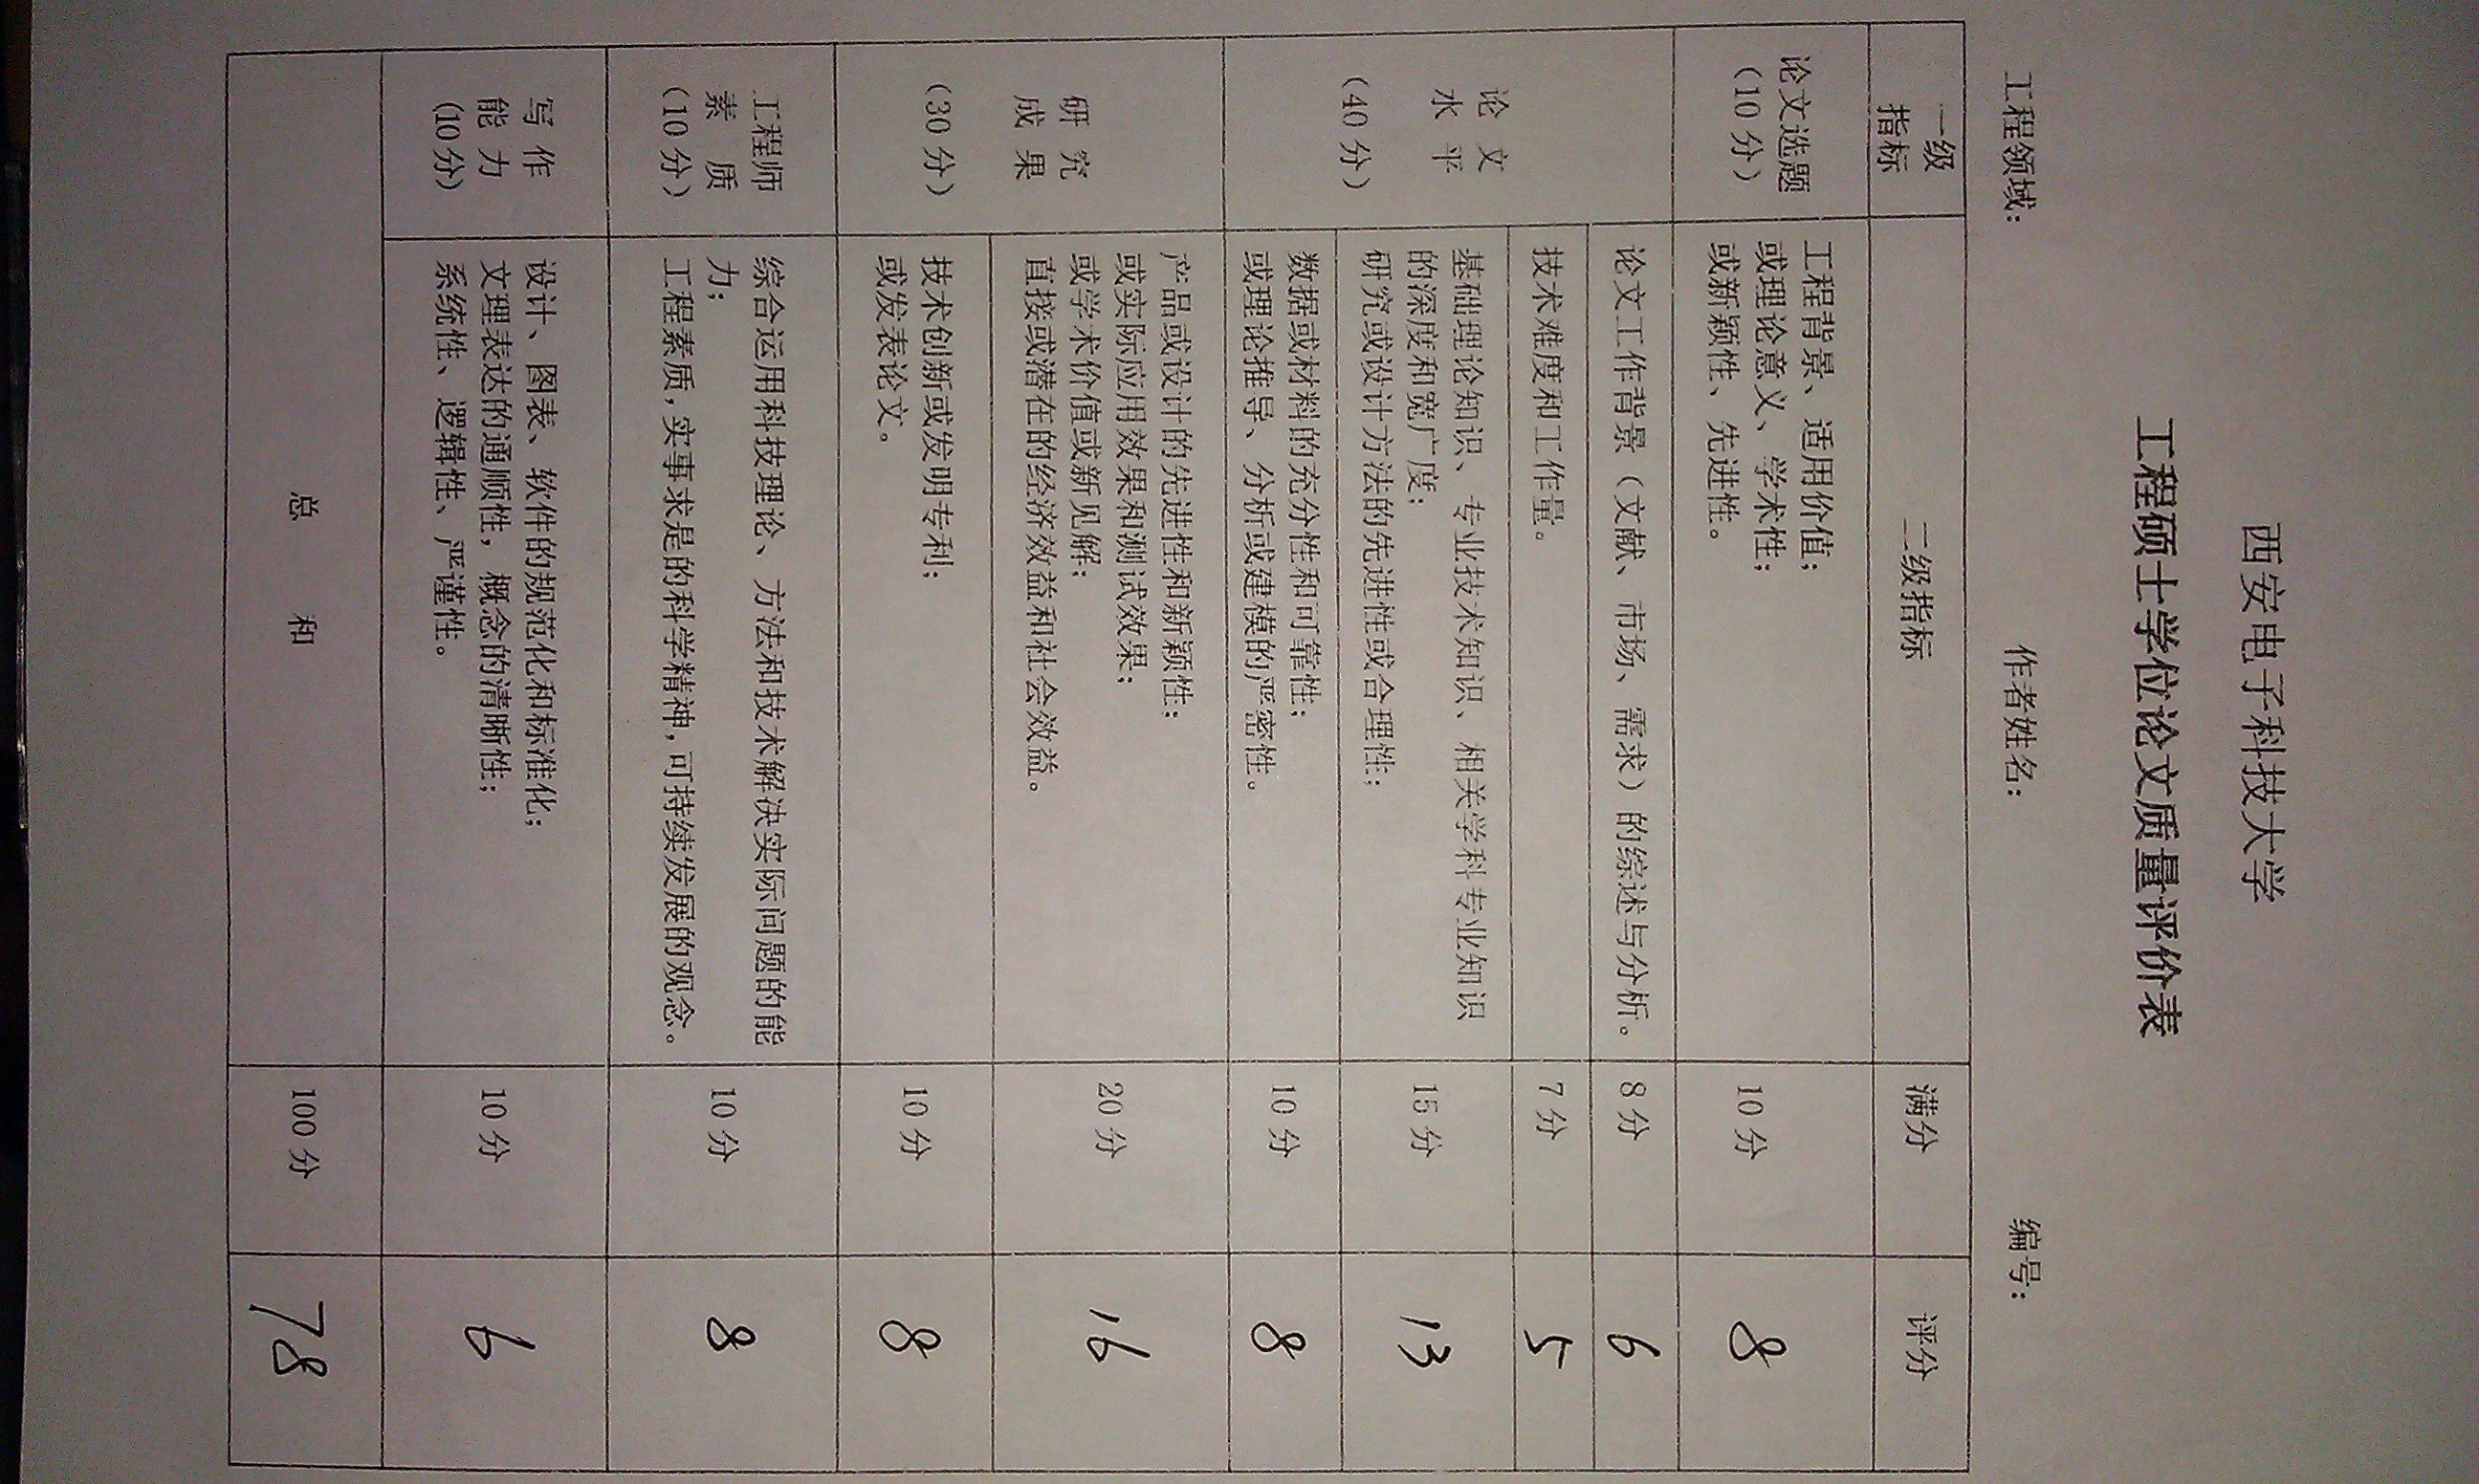 西安电子科技大学
工程硕士学位论文质量评价表
工程领域： 作者姓名： 编号：
一级
指标
二级指标
满分
评分
论文选题
（10分）
工程背景、适用价值；
或理论意义、学术性；
或新颖性、先进性。
10分
8
论文
水平
（40分）
论文工作背景（文献、市场、需求）的综述与分析。
8分
6
技术难度和工作量。
7分
5
基础理论知识、专业技术知识、相关学科专业知识
的深度和宽广度；
研究或设计方法的先进性或合理性；
15分
13
数据或材料的充分性和可靠性；
或理论推导、分析或建模的严密性。
10分
8
研究
成果
（30分）
产品或设计的先进性和新颖性；
或实际应用效果和测试效果；
或学术价值或新见解；
直接或潜在的经济效益和社会效益。
20分
16
技术创新或发明专利；
或发表论文。
10分
8
工程师
素质
（10分）
综合运用科技理论、方法和技术解决实际问题的能
力；
工程素质，实事求是的科学精神，可持续发展的观念。
10分
8
写作
能力
（10分）
设计、图表、软件的规范化和标准化；
文理表达的通顺性，概念的清晰性；
系统性、逻辑性、严谨性。
10分
6
总和
100分
78